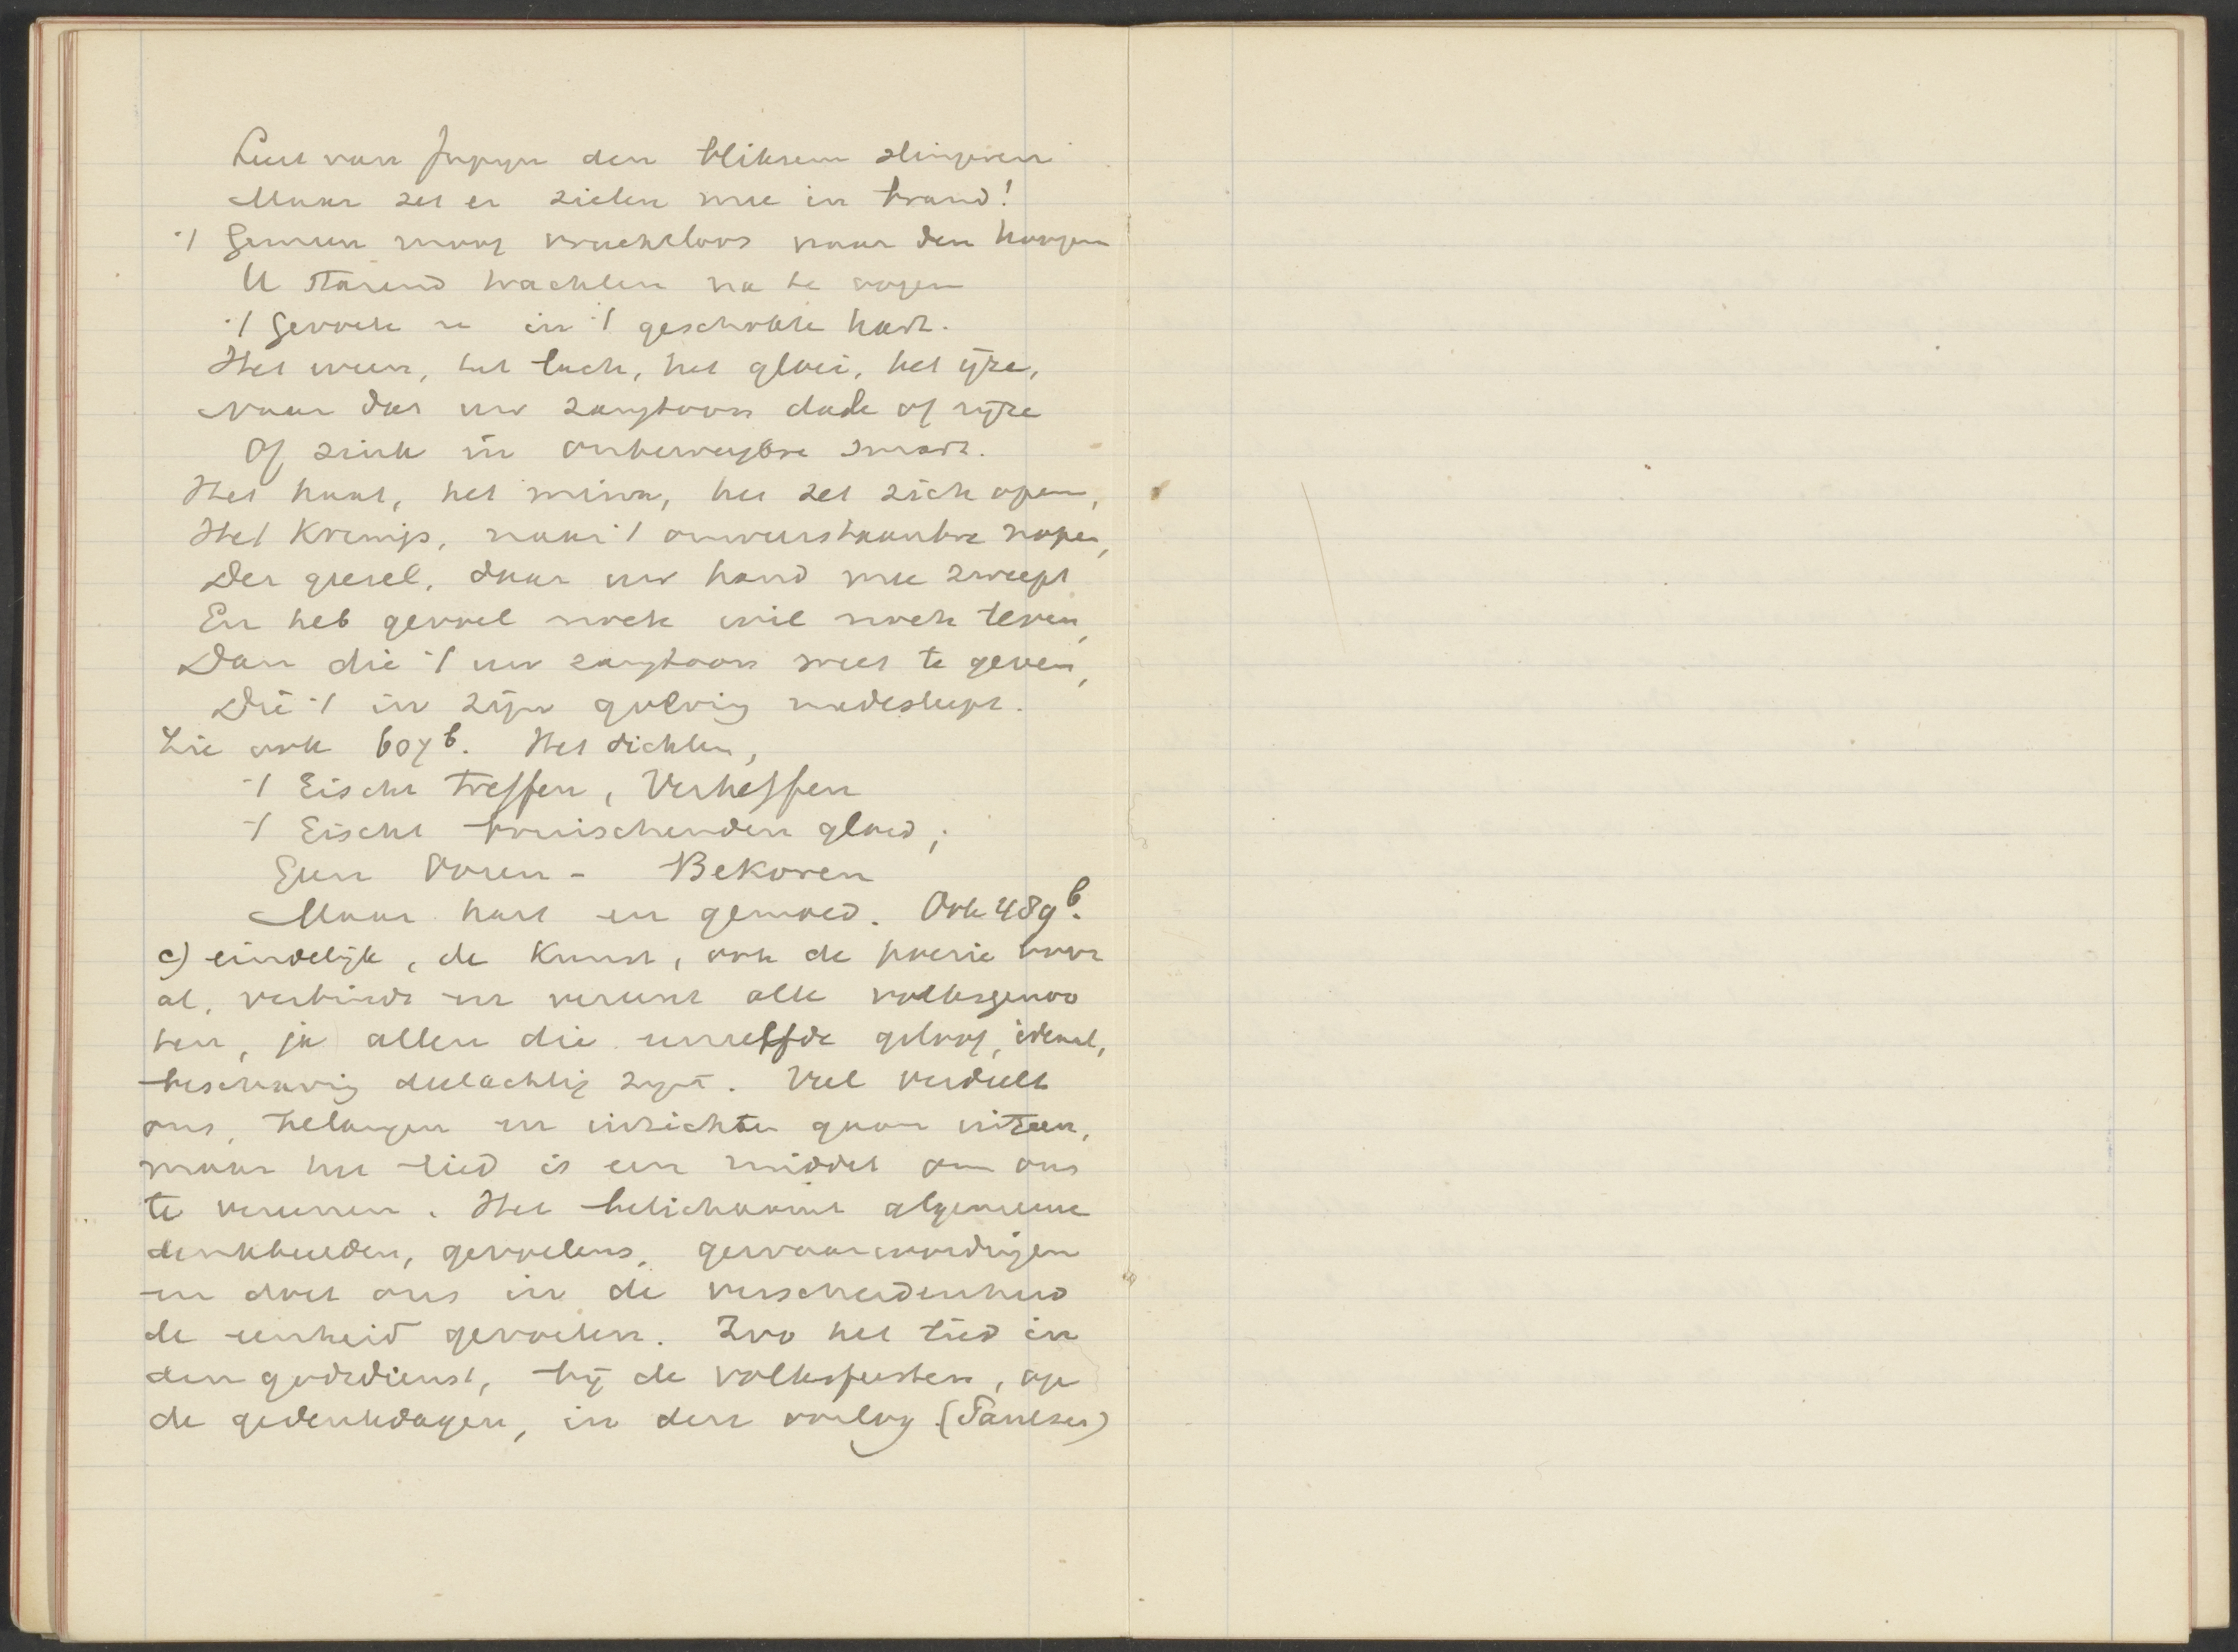 Leert van Jupyn den bliksem slingeren
Maar zet er zielen mee in brand!
't Gemeen moog vruchtloos naar den hoogen
U starend trachten na te oogen
't Gevoele u in 't geschokte hart.
Het ween, het lach, het gloei, het ijze,
Naar dat uw zangtoon dale of rijze
Of zink in onbeweegbre smart.
Het haat, het minn, het zet zich open,
Het Krimp, naar 't onweerstaanbre nopen,
Der geesel, daar uw hand mee zweept
En heb gevoel noch wil noch leven,
Dan die 't uw zangtoon weet te geven,
Die 't in zijn golving medesleept.
Zie ook 607b. Het dichten,
't Eischt treffen, Verheffen
't Eischt bruischenden gloed;
Geen Ooren - Bekoren
Maar hart en gemoed. Ook 489b.
c) eindelijk, de Kunst, ook de poezie voor
al, verbindt en vereent alle volksgenoo
ten, ja allen die eenzelfde geloof, ideaal,
beschaving deelachtig zijn. Veel verdeelt
ons, belangen en inzichten gaan uiteen,
maar het lied is een middel om ons
te vereenen. Het belichaamt algemeene
denkbeelden, gevoelens, gewaarwordingen
en doet ons in de verscheidenheid
de eenheid gevoelen. Zoo het lied in
den godsdienst, bij de volksfeesten, op
de gedenkdagen, in den oorlog (Paulsen)